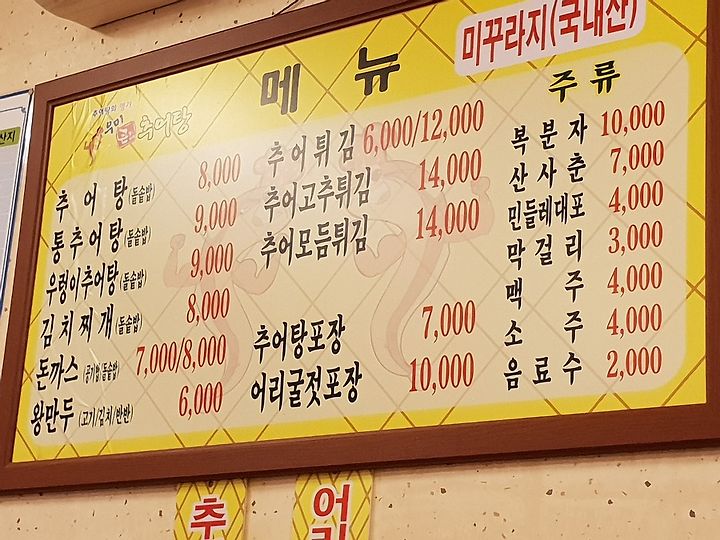 미꾸라지(국내산)
메뉴
추어탕
추어탕(돌솥밥) 8,000
통추어탕(돌솥밥) 9,000
우렁이추어탕(돌솥밥) 9,000
김치찌개(돌솥밥) 8,000
돈까스(공기밥/돌솥밥) 7,000/8,000
왕만두(고기/김치/반반) 6,000
추어튀김 6,000/12,000
추어고추튀김 14,000
추어모듬튀김 14,000
추어탕포장 7,000
어리굴젓포장 10,000
주류
복분자 10,000
산사춘 7,000
민들레대포 4,000
막걸리 3,000
맥주 4,000
소주 4,000
음료수 2,000
추
어리